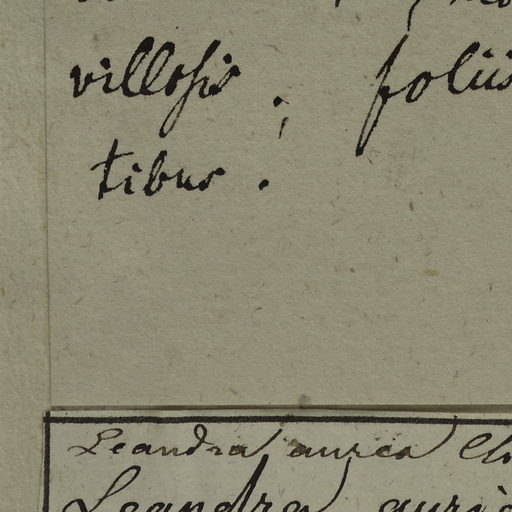 villosis; foliis
tibus.
Leandra aurea
Leandra